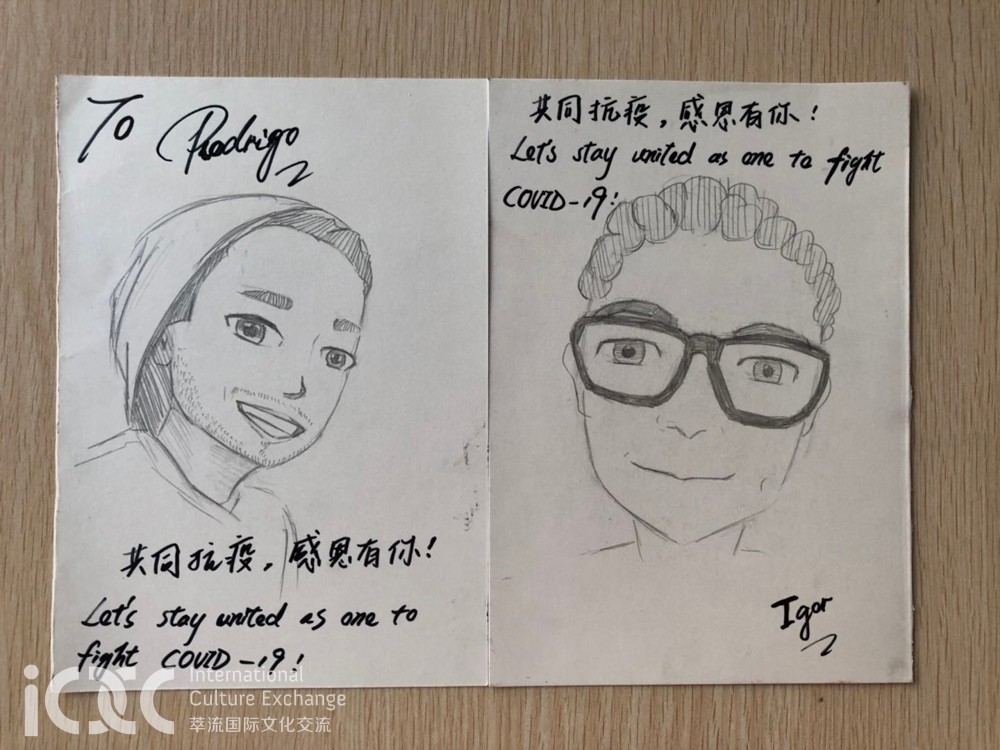 To Rodrigo
共同抗疫，感恩有你！
Let's stay united as one to
fight COVID-19!
共同抗疫，感恩有你！
Let's stay united as one to fight
COVID-19!
Igor
iCEC
International
Culture Exchange
萃流国际文化交流